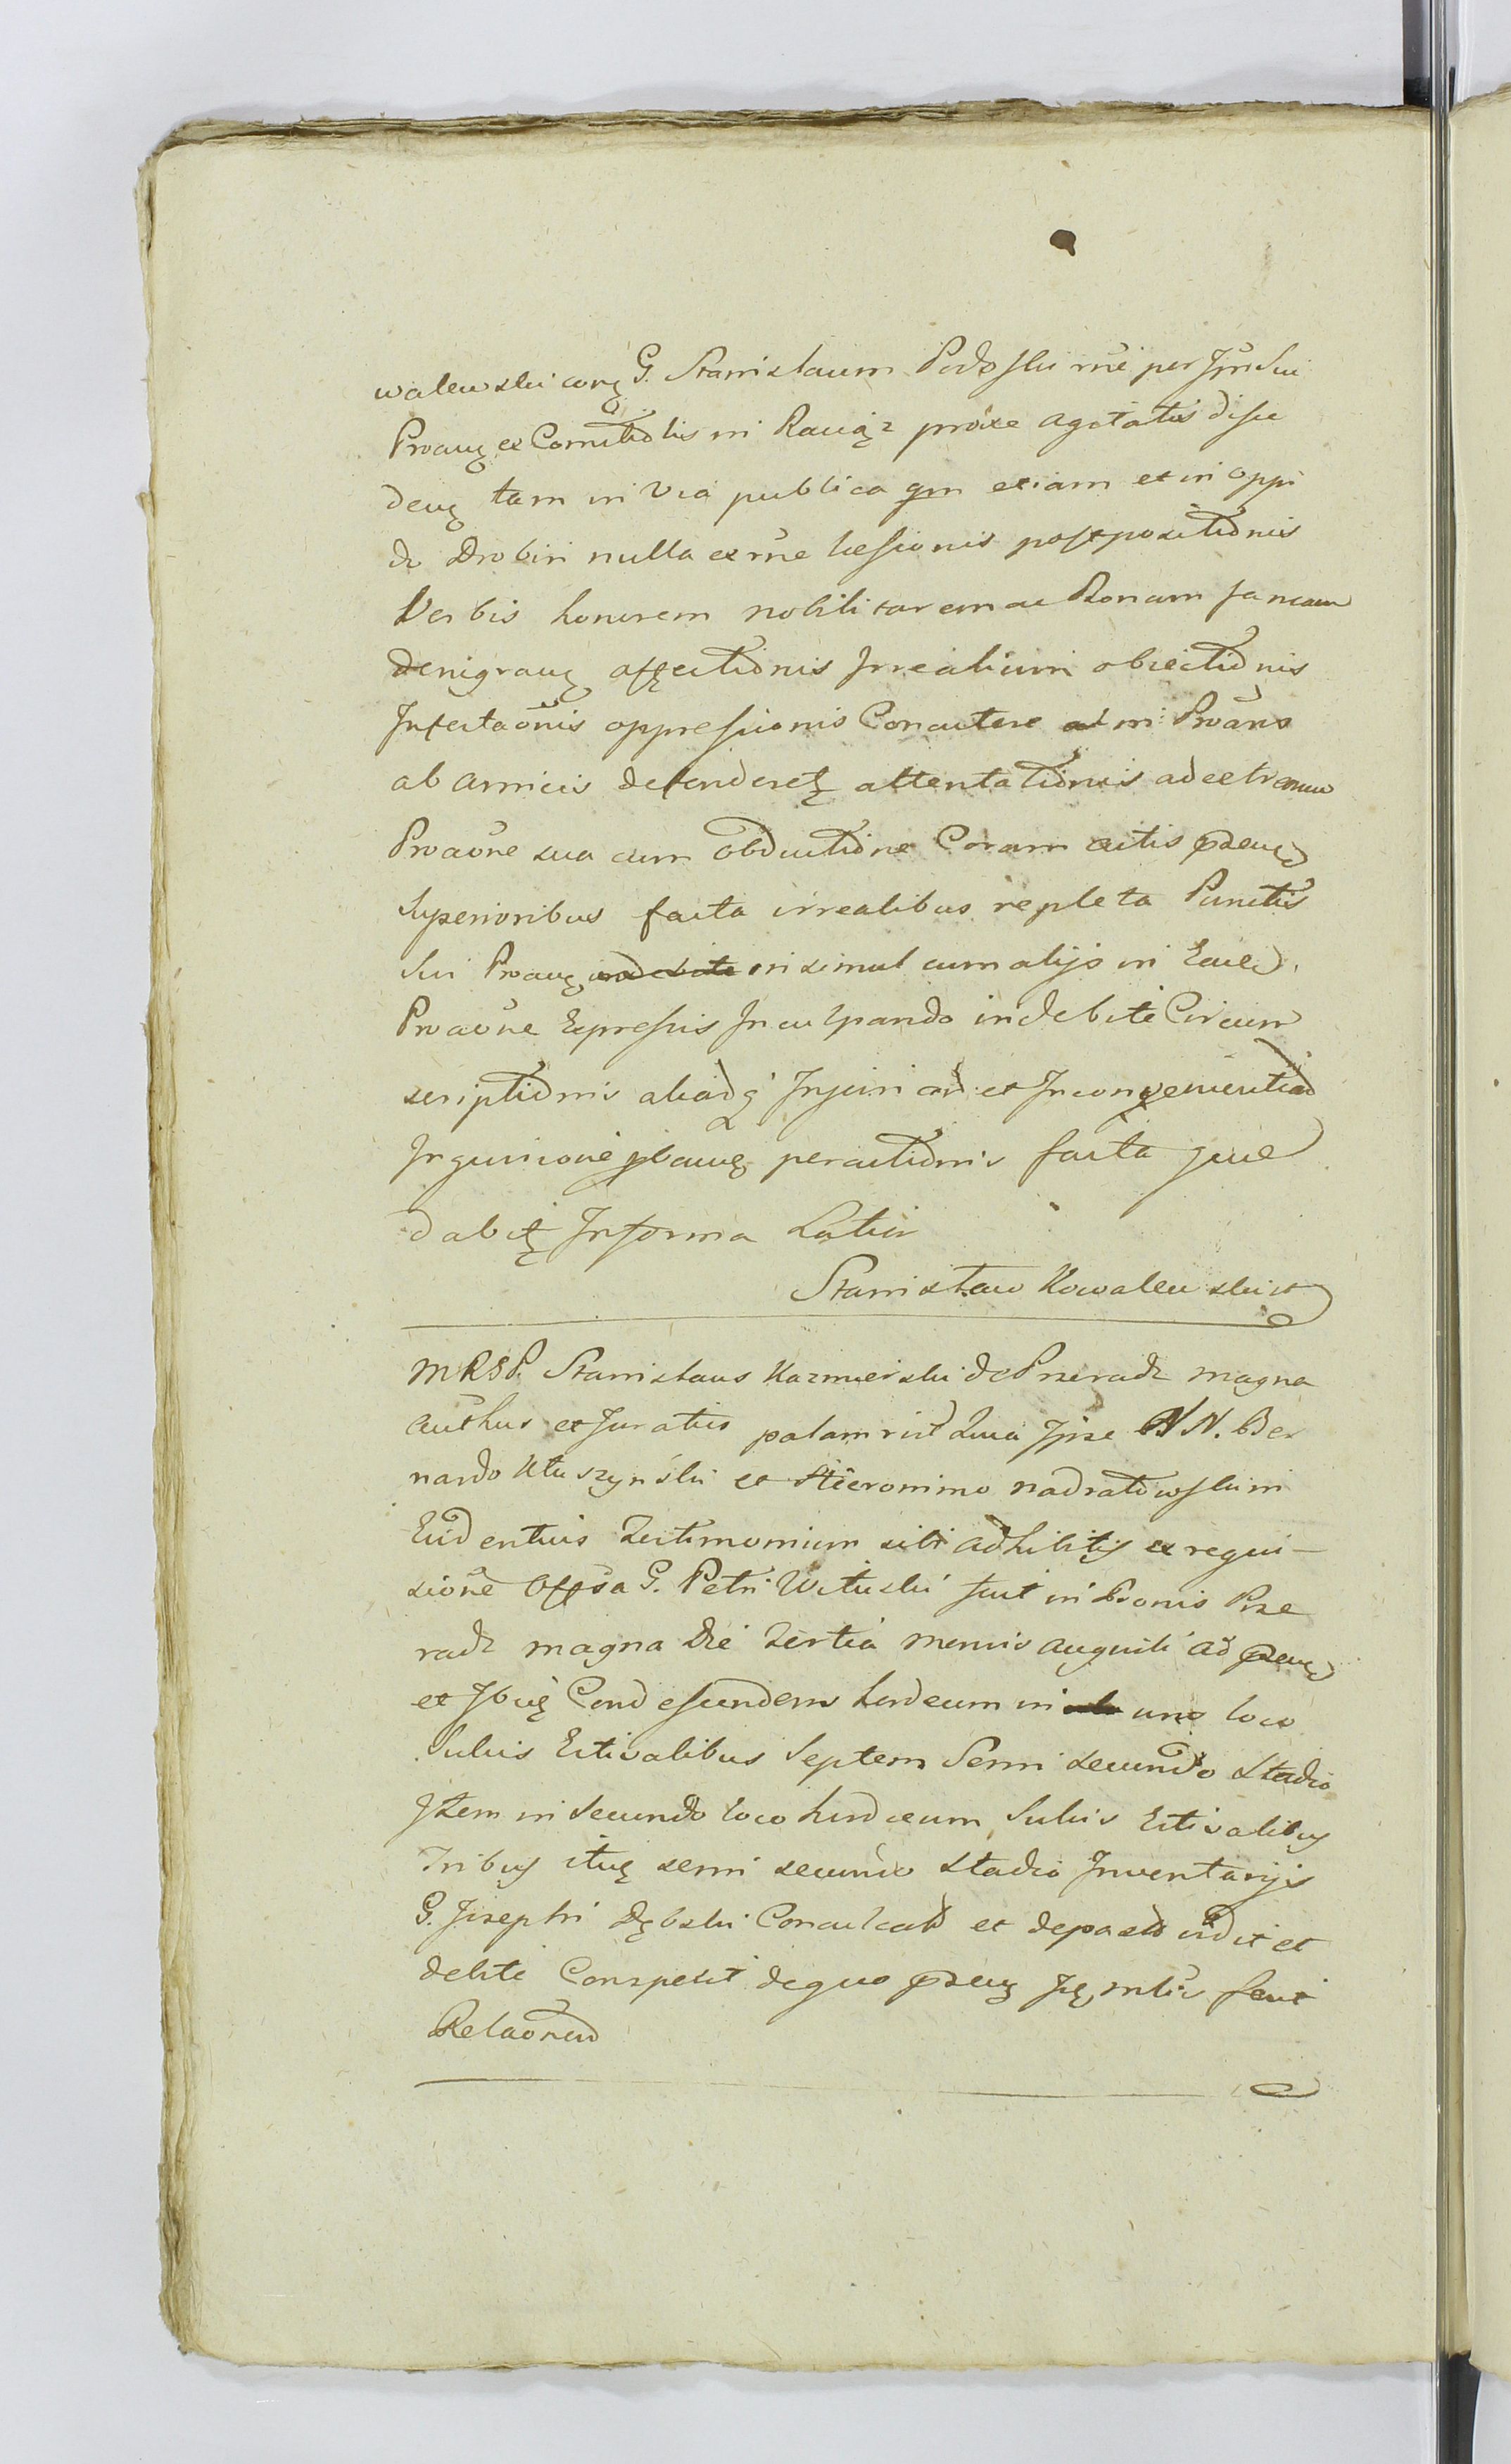 walewski conq G. Stanislaum Podoski rne per Jpm Sui
Proanq ex Comitiolis in Raciąz proxe agitatis disce
denq tam in Via publica qm etiam et in oppi
do Drobin nulla ex rne læsionis postpositionis
Verbis honorem nobilitarem ac Bonam famam
denigranq affectionis Irrealium obiectionis
Infectaonis oppressionis Concutere ad mi Proans
ab amicis defenderetq attentationis ad extremum
Proaone sua cum obductione Coram actis pzenq
Superioribus facta irrealibus repleta Punctis
Sui Proanq insimul cum alijs in Eadem
Proaone Expressis Inculpando indebite Circum
scriptionis aliarq Injuriar et Inconvenientiar
Inquisitione pbanq peractionis facta jure
dabitq Informa Latiori
Stanisław Kowalewski
MRSP. Stanislaus Kazmierski de Przeradz magna
authus et Juratus palam rct Quia Ipse NN. Ber
nardo Kłuszyński et Hieronimo nadratowski in
Evidentius Testimonium sibi adhibitis ex requi-
sitione Offsa G. Petri Wituski fuit in Bonis Prze
radz magna Die Tertia Mensis augusti ad pzen
et Ibiq Condescendens hordeum in uno loco
Sulcis Estivalibus Septem Semi secundo Stadio
Item in Secundo loco hordeum Sulcis Estivalibus
Tribus itq semi secundo Stadio Inventarijs
G. Josephi Dębski Conculcat et depast vidit et
debite Conspexit de quo pzenq Jq mlir fecit
Relaonem